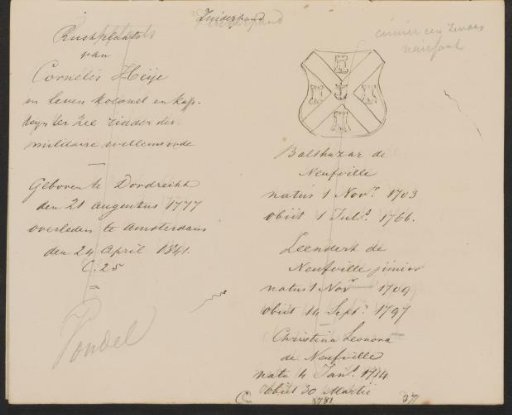 Zuiderpand
Rustplaats
van
Cornelis Heije
in leven kolonel en kap-
teyn ter zee ridder der
militaire willemsorde
Geboren te Dordrecht
den 21 augustus 1777
overleden te Amsterdam
den 24 April 1841
C. 25
Vondel
Balthazar de
Neufville
natus 1 Novr. 1703
obiit 1 Juld. 1766.
Leendert de
Neufville junior
natus 1 Novr 1709
obiit 14 Sept. 1797
Christina Leonora
de Neufville
nata 4 Jand. 1714
obiit 30 Martis
1781